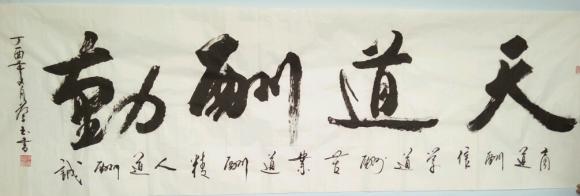 天道酬勤
商道酬信学道酬苦業道酬精人道酬誠
丁酉年月玉書